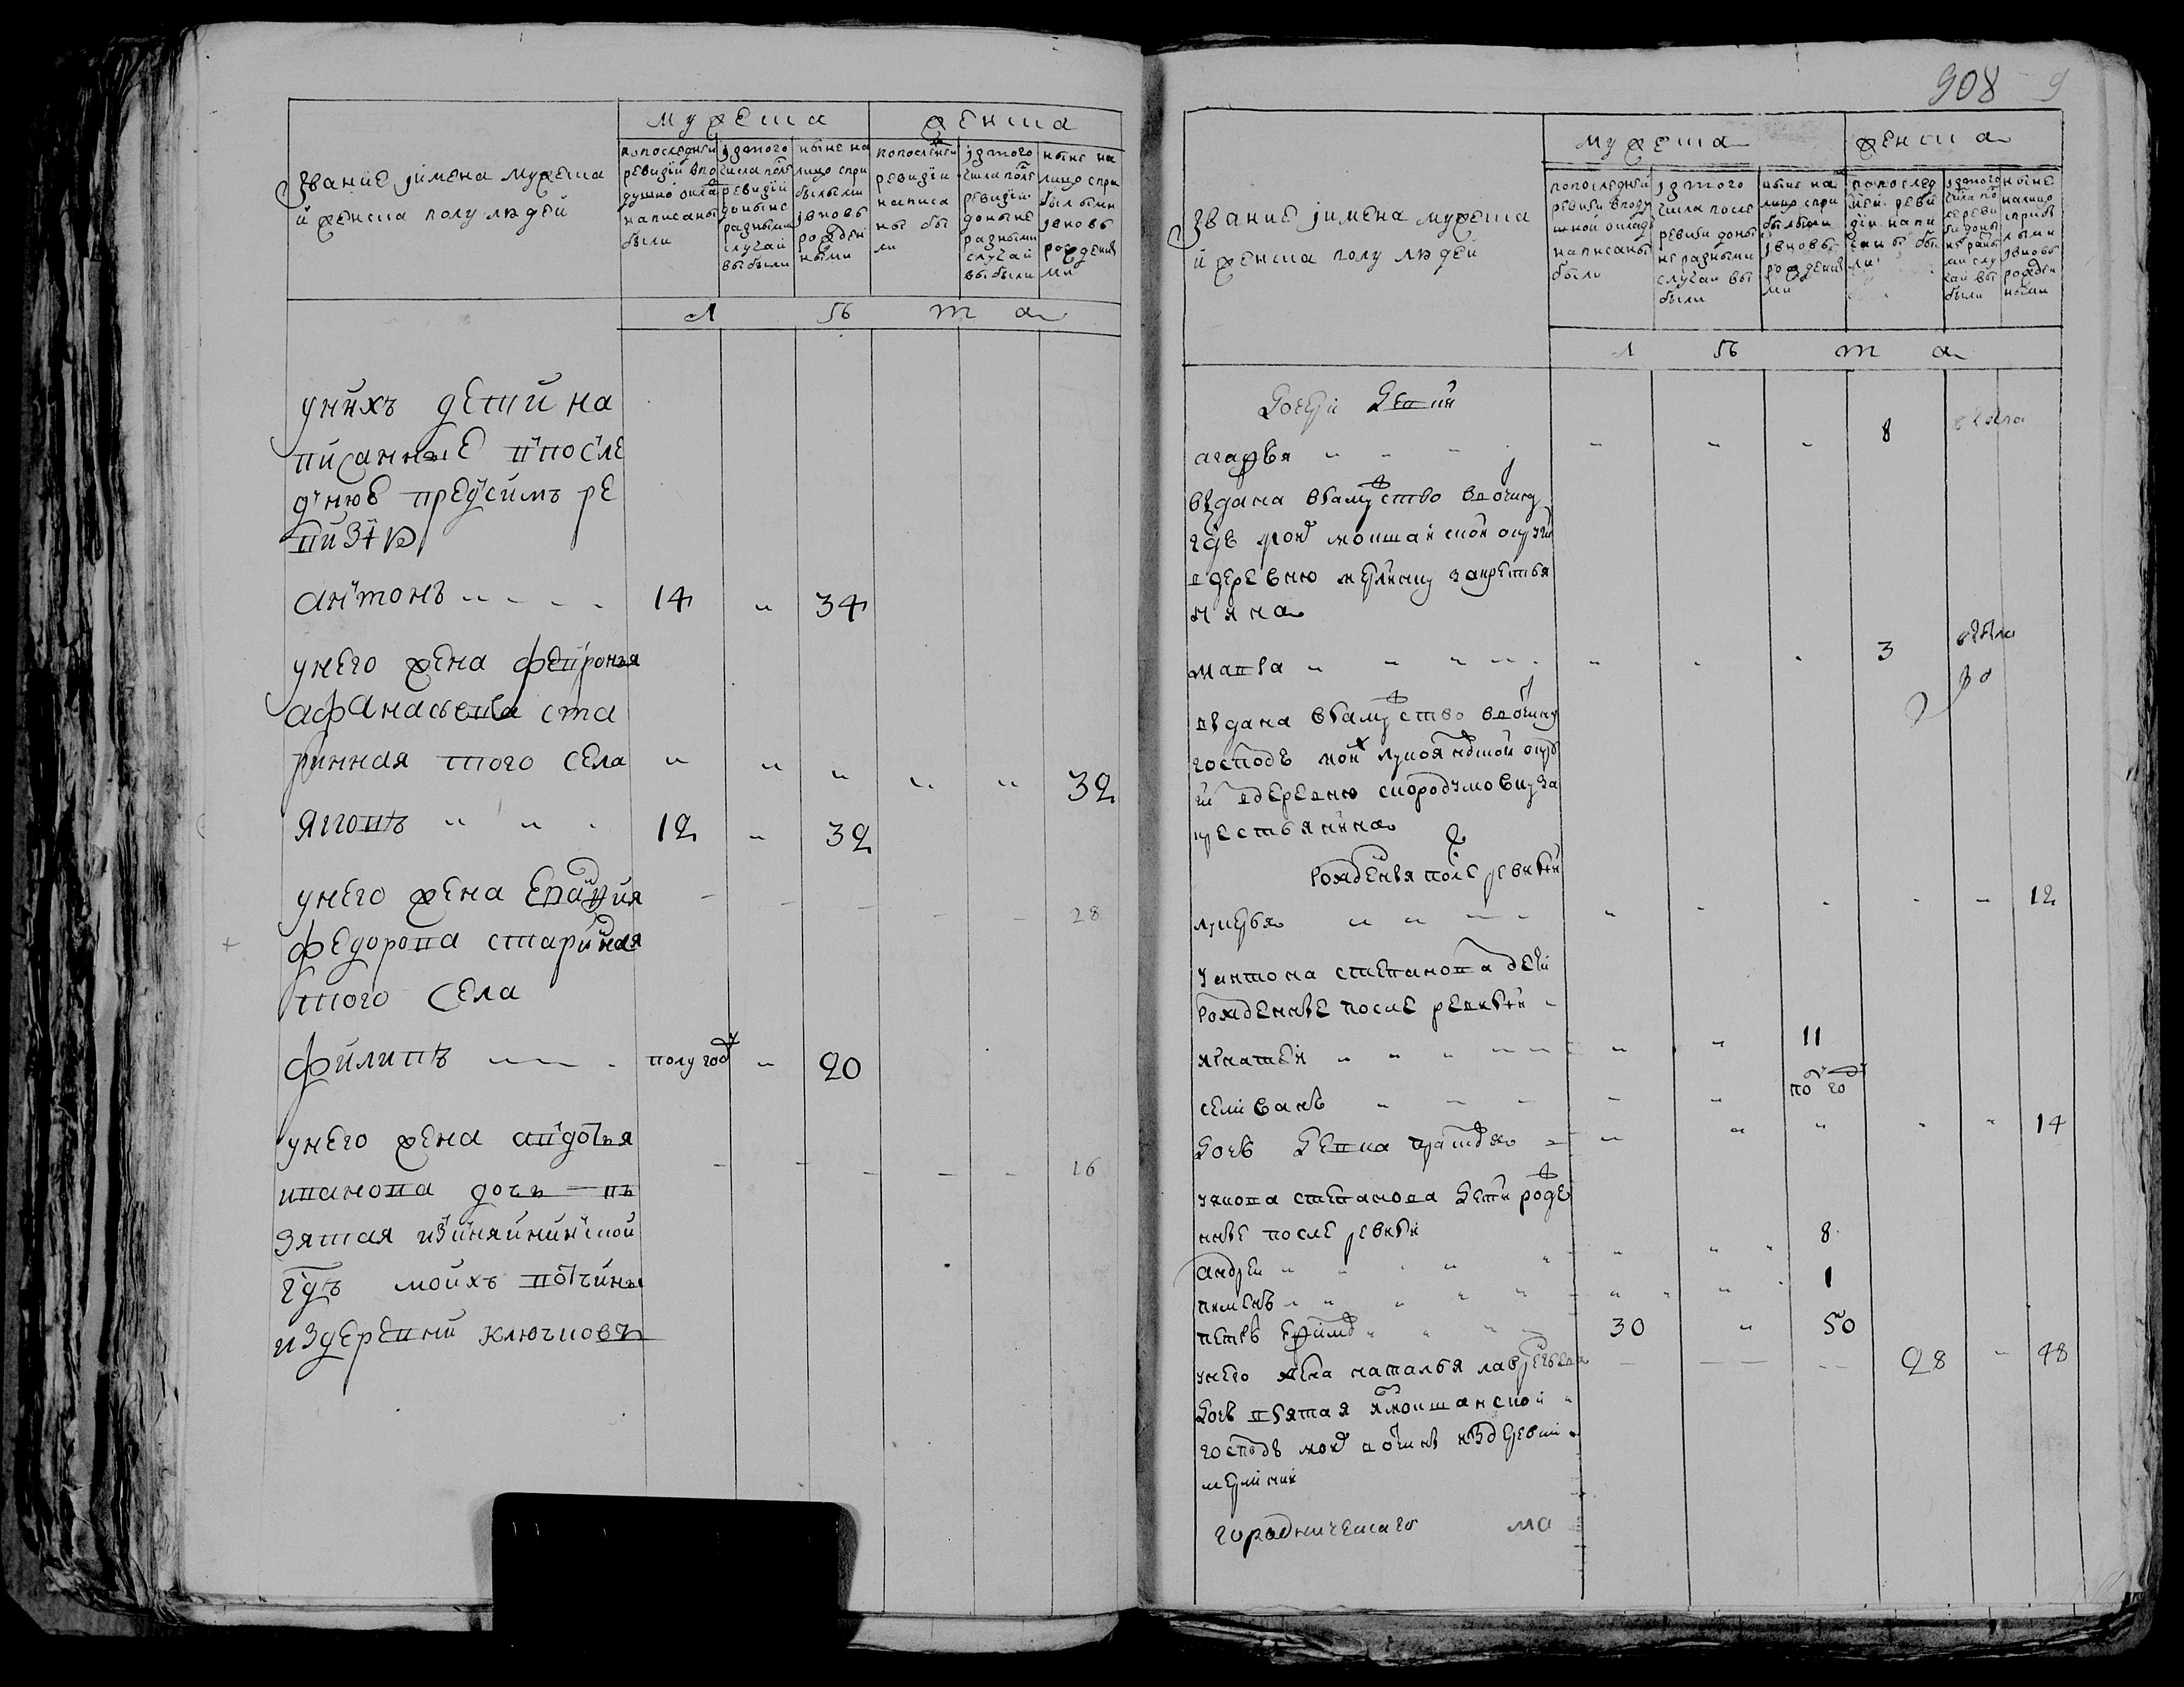 мужеска
женска
звание іимена мужеска
и женска полу людей
попоследней ревизïи впо душно окла написаны были
изтого числа после ревизïи доныне разными случаи выбыли
ныне на лицо спри былыми ивновь рожден ными
попоследней ревизïи написа ны бы ли
изтого числа после ревизïи доныне разными случаи выбыли
ныне на лицо спри былыми ивновь рожденны ми
л ѣ т а
унихъ дети на
писанные впосле
днюе предсимъ ре
визïю
антонъ 14 34
унего жена феврония
афанасьева ста
ринная того села 32
яковъ 12 32
унего жена
28
федорова старинная
того села
филипъ полугод 20
унего жена авдотья
иванова дочь въ 26
зятая
мойхъ вотчины
издеревни ключиовъ
908 9
мужеска
женска
звание іимена мужеска
и женска полу людей
попоследней ревизи вподу шной оклад написаны были
изтого числа после ревизи доны не разными случаи вы были
ныне на лицо спри былыми ивновь рожденны ми
попослед ней реви зïи напи саны бы ли
изтого числа по сле реви зи доны не разны ми слу чаи вы были
ныне налицо сприбы лыми ивновь рожден ными
л ѣ т а
дочери девки
агафья 8 выбыла
выдана взамужство ввотчину
вдеревню закрестья
нина
мавра 3 выбыла
выдана взамужство ввотчину
господъ моих
вдеревню за
крестьянина
рожденая после ревизïи
лукерья 12
уантона степанова дети
рожденные после ревизïи
игнатей 11
селиванъ полго
дочь девка 14
уякова степанова дети рожде
ные после ревизи
андрей 8
пименъ 1
петръ ефимо 30 50
унего жена наталья лаврентьева 28 48
дочь взятая
господъ мои вотчины издеревни
городническаго ма